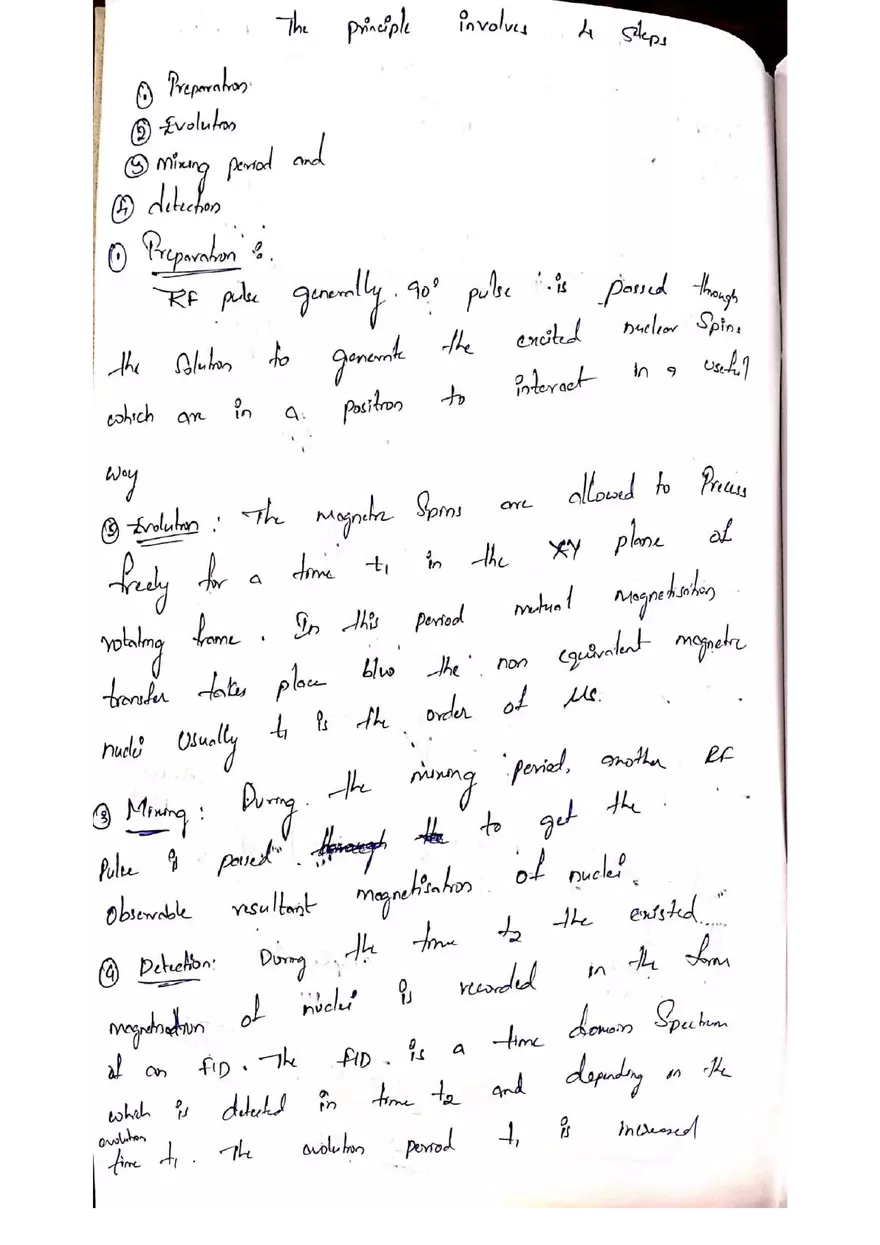 The principle involves 4 steps
① Preparation
② Evolution
③ Mixing period and
④ detection
① Preparation :.
RF pulse generally 90° pulse is passed through
the solution to generate the excited nuclear Spins
which are in a position to interact in a useful
way
② Evolution : The magnetic Spins are allowed to Precess
freely for a time t₁ in the XY plane of
rotating frame. In this period mutual magnetisation
transfer takes place b/w the non equivalent magnetic
nuclei Usually t₁ is the order of μs.
③ Mixing : During the mixing period, another RF
Pulse is passed to get the
Observable resultant magnetisation of nuclei.
④ Detection: During the time t₂ the existed
magnetisation of nuclei is recorded in the form
of an FID. The FID is a time domain Spectrum
which is detected in time t₂ and depending on the
evolution
time t₁. The evolution period t₁ is increased